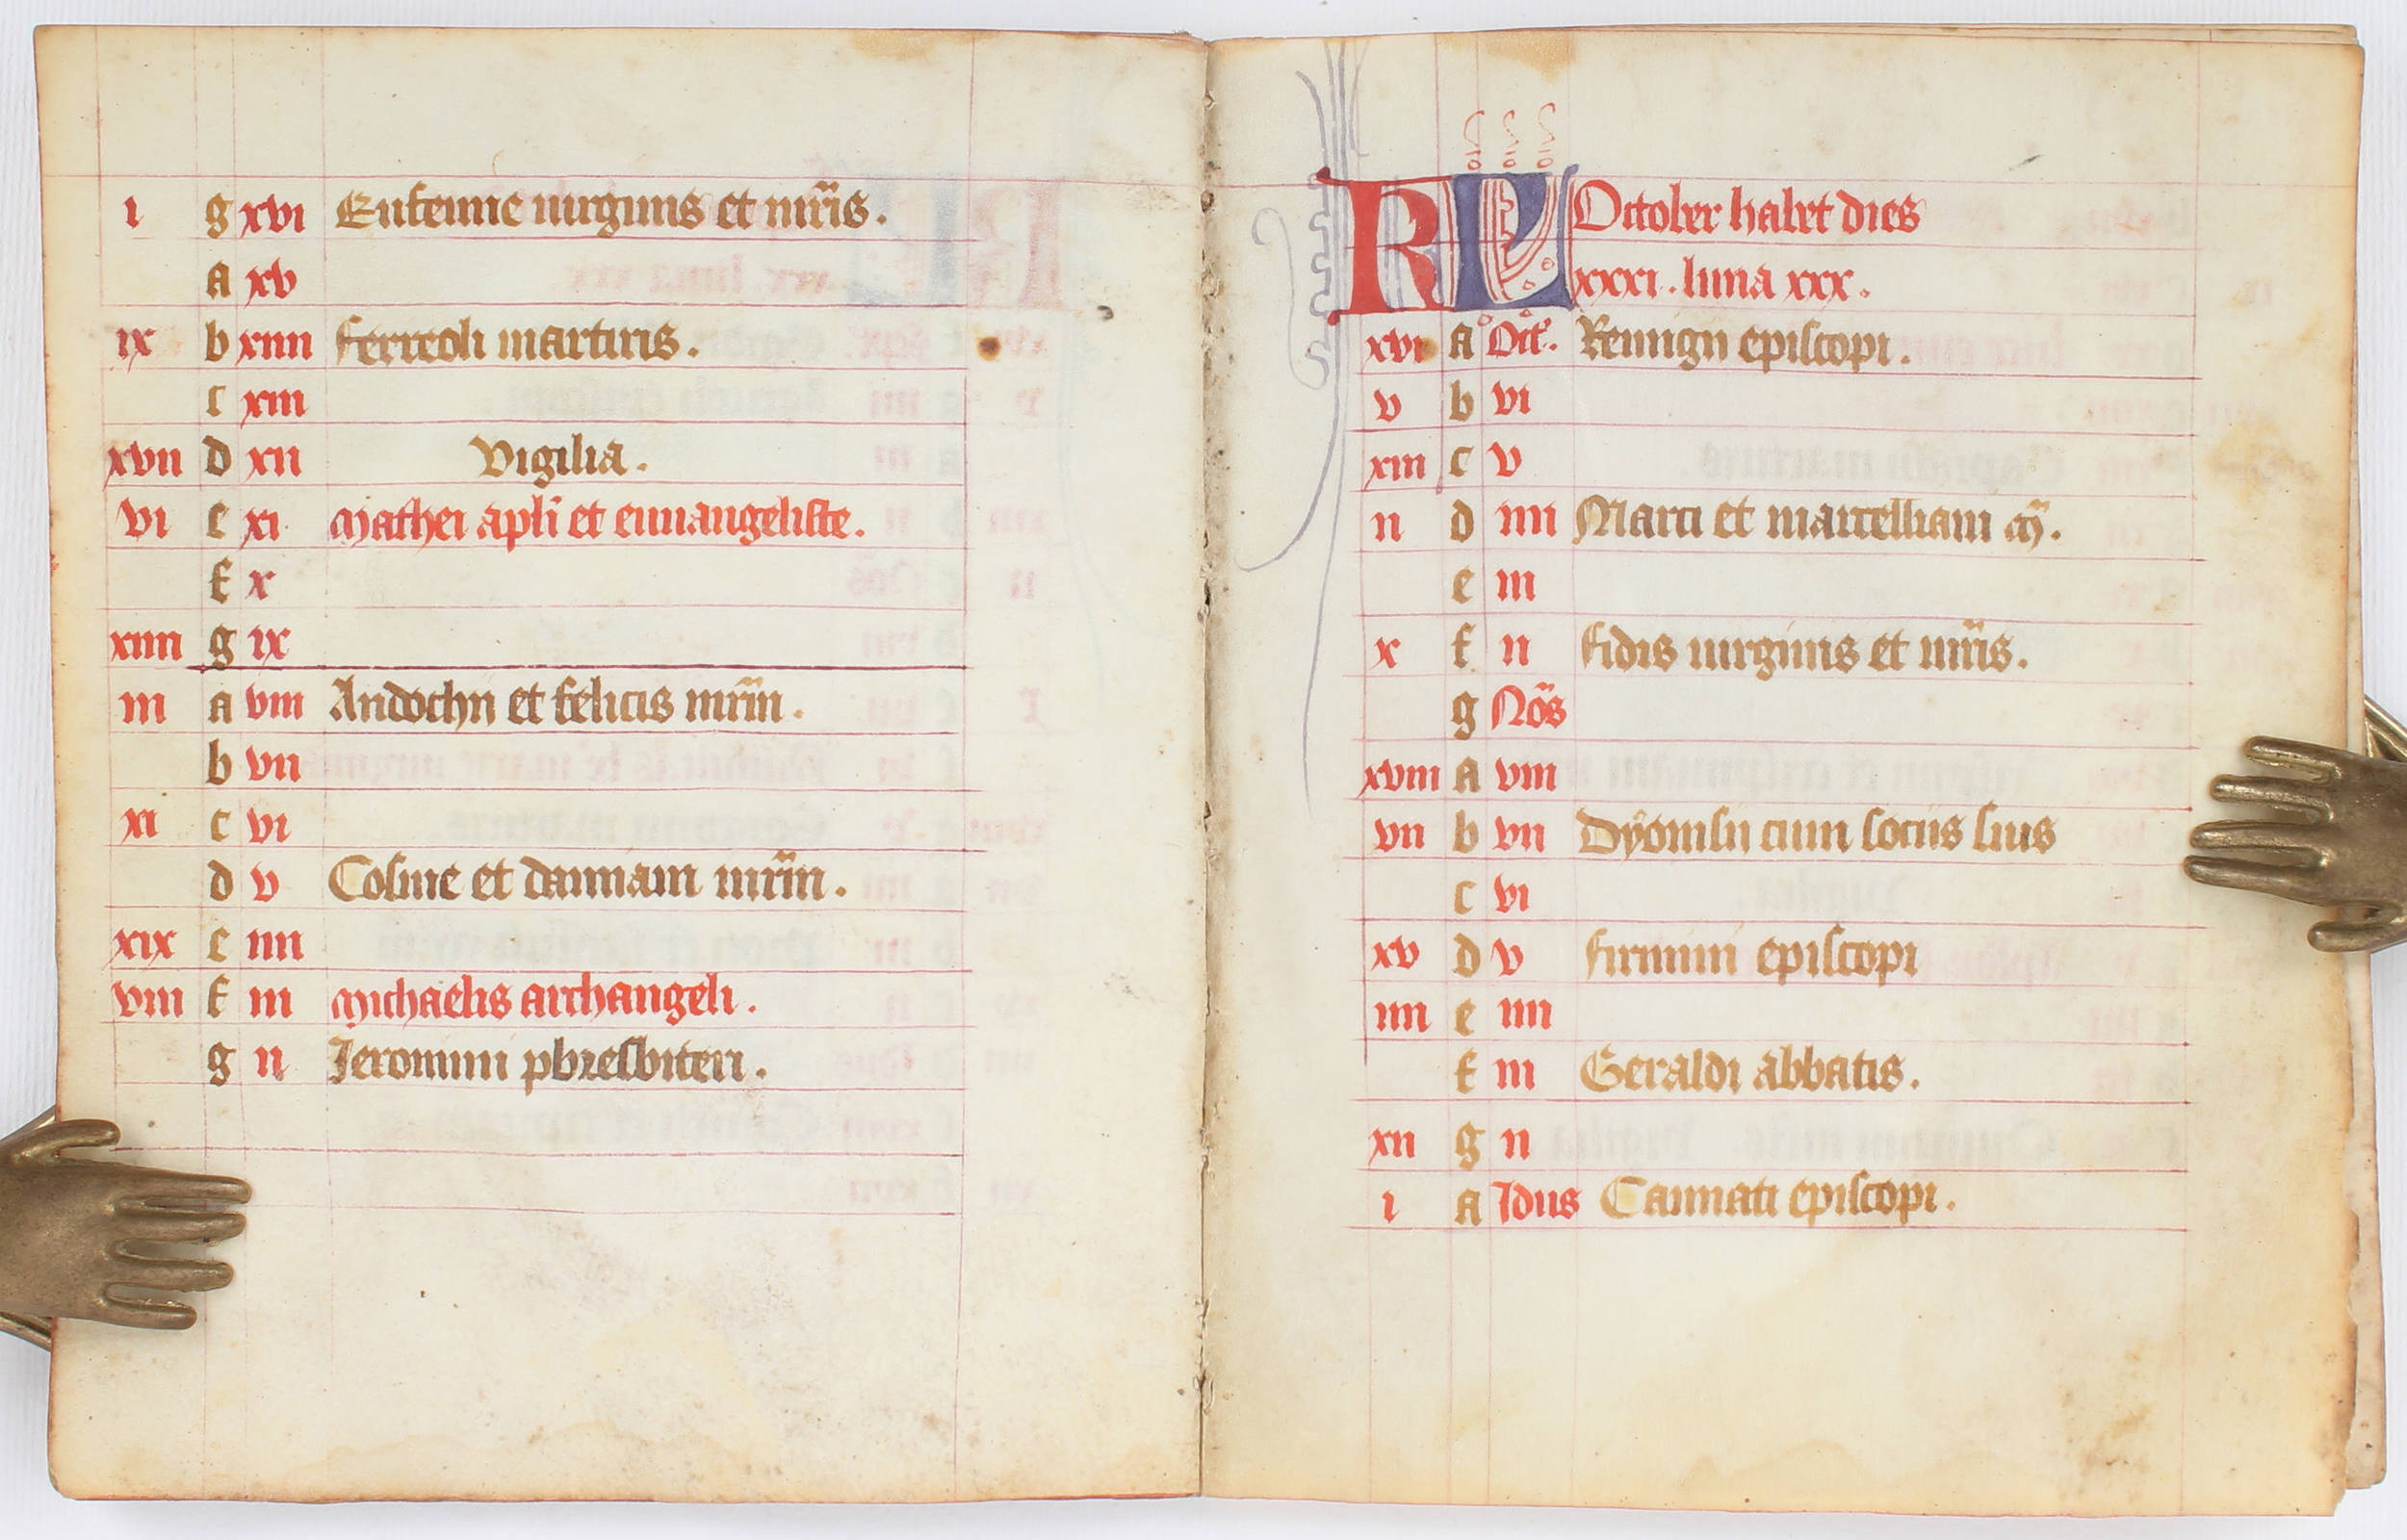 i g xvi Eufemie uirginis et mr̃is.
a xv
ix b xiiii Ferreoli martiris.
c xiii
xvii d xii Vigilia.
vi e xi Mathei apl̃i et euuangeliste.
f x
xiiii g ix
iii a viii Andochii et felicis mr̃m.
b vii
xi c vi
d v Cosme et damiani mr̃m.
xix e iiii
viii f iii Michaelis archangeli.
g ii Jeronimi pbresbiteri.
KL October habet dies
xxxi. luna xxx.
xvi a Oct̃. Remigii episcopi.
v b vi
xiii c v
ii d iiii Marci et marcelliani m̃.
e iii
x f ii Fidis uirginis et mr̃is.
g Nõs
xviii a viii
vii b vii Dyonisii cum sociis suis
c vi
xv d v Firmini episcopi
iiii e iiii
f iii Geraldi abbatis.
xii g ii
i a Idus Cannati episcopi.